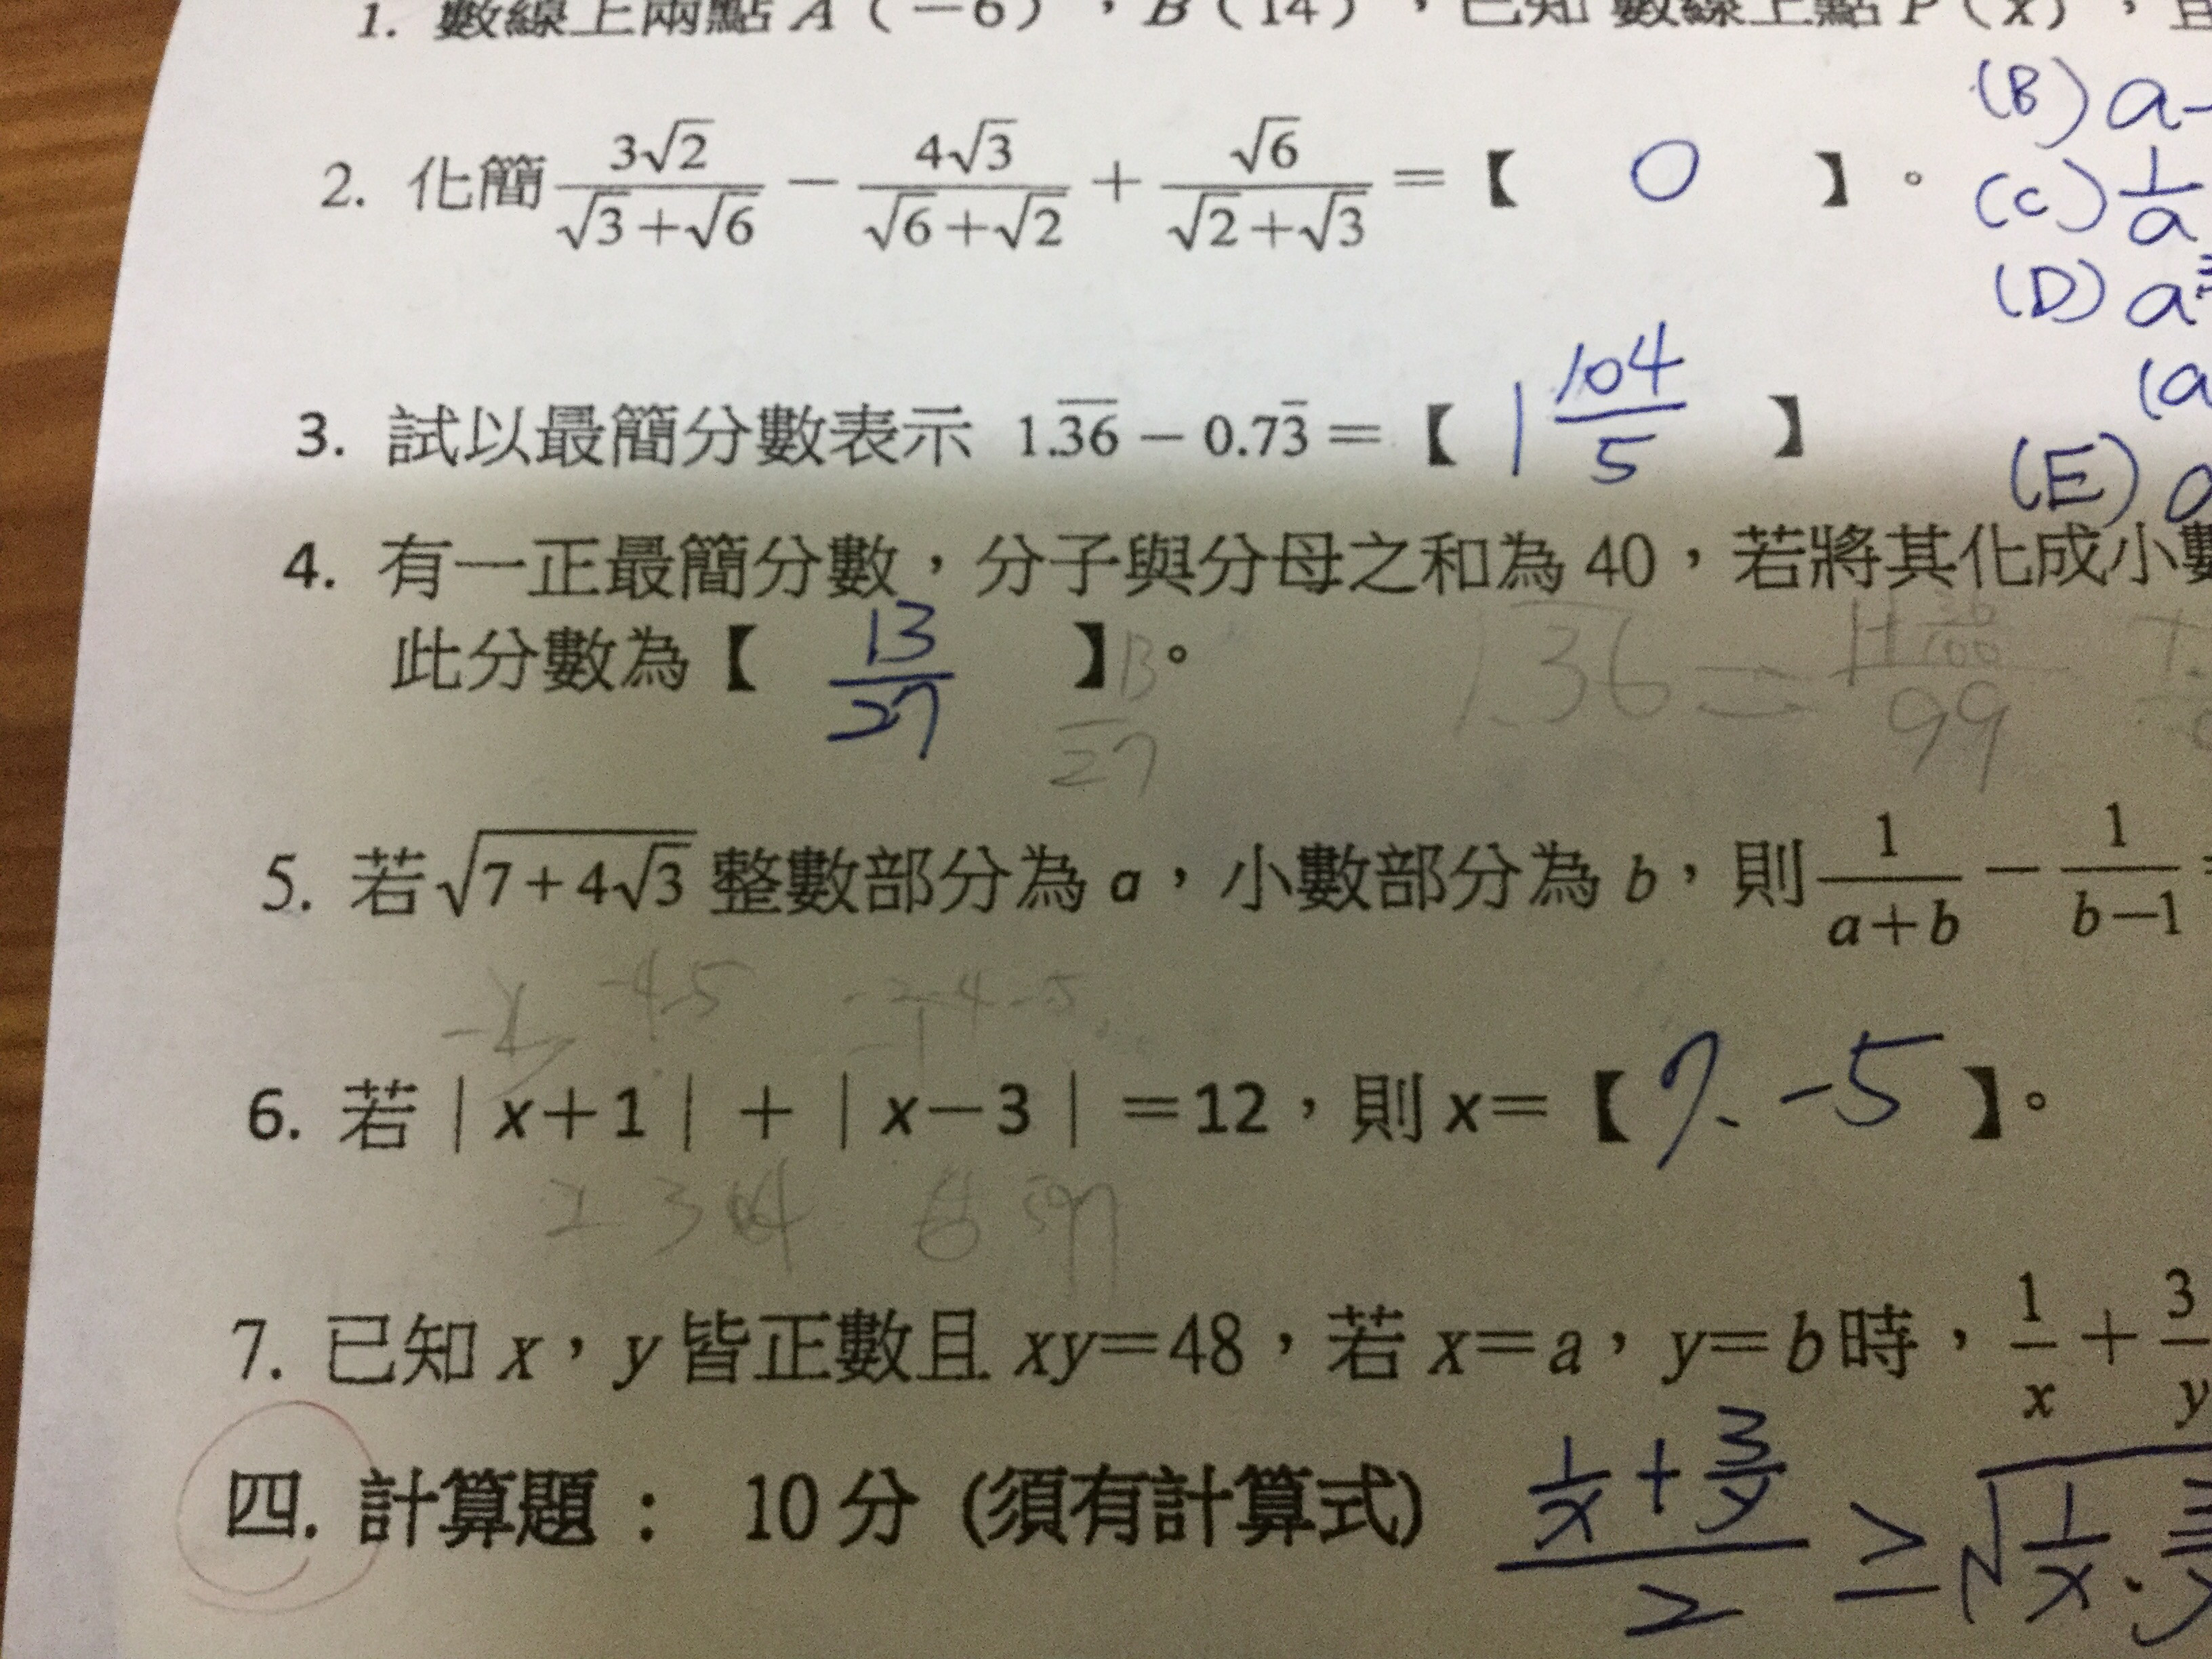 1. 數線上兩點 A (−6) , B (14) , 已知 數線上點 P (x) , 且
(B) a-
2. 化簡 3√2/(√3+√6) − 4√3/(√6+√2) + √6/(√2+√3) = 【 0 】。
(C) 1/a
(D) a
3. 試以最簡分數表示 1.3̅6̅ − 0.73̅ = 【 1 104/5 】
(a
(E) a
4. 有一正最簡分數,分子與分母之和為 40,若將其化成小數
此分數為【 13/27 】。
13/27
1.36 =
99
5. 若 √(7+4√3) 整數部分為 a,小數部分為 b,則 1/(a+b) − 1/(b−1) =
-4 5
-2 -4 -5
6. 若 | x+1 | + | x−3 | =12,則 x=【 7、-5 】。
2 3
7. 已知 x,y 皆正數且 xy=48,若 x=a,y=b 時, 1/x + 3/y
四. 計算題: 10 分 (須有計算式)
(1/x + 3/y)/2 ≥ √(1/x · 3/y